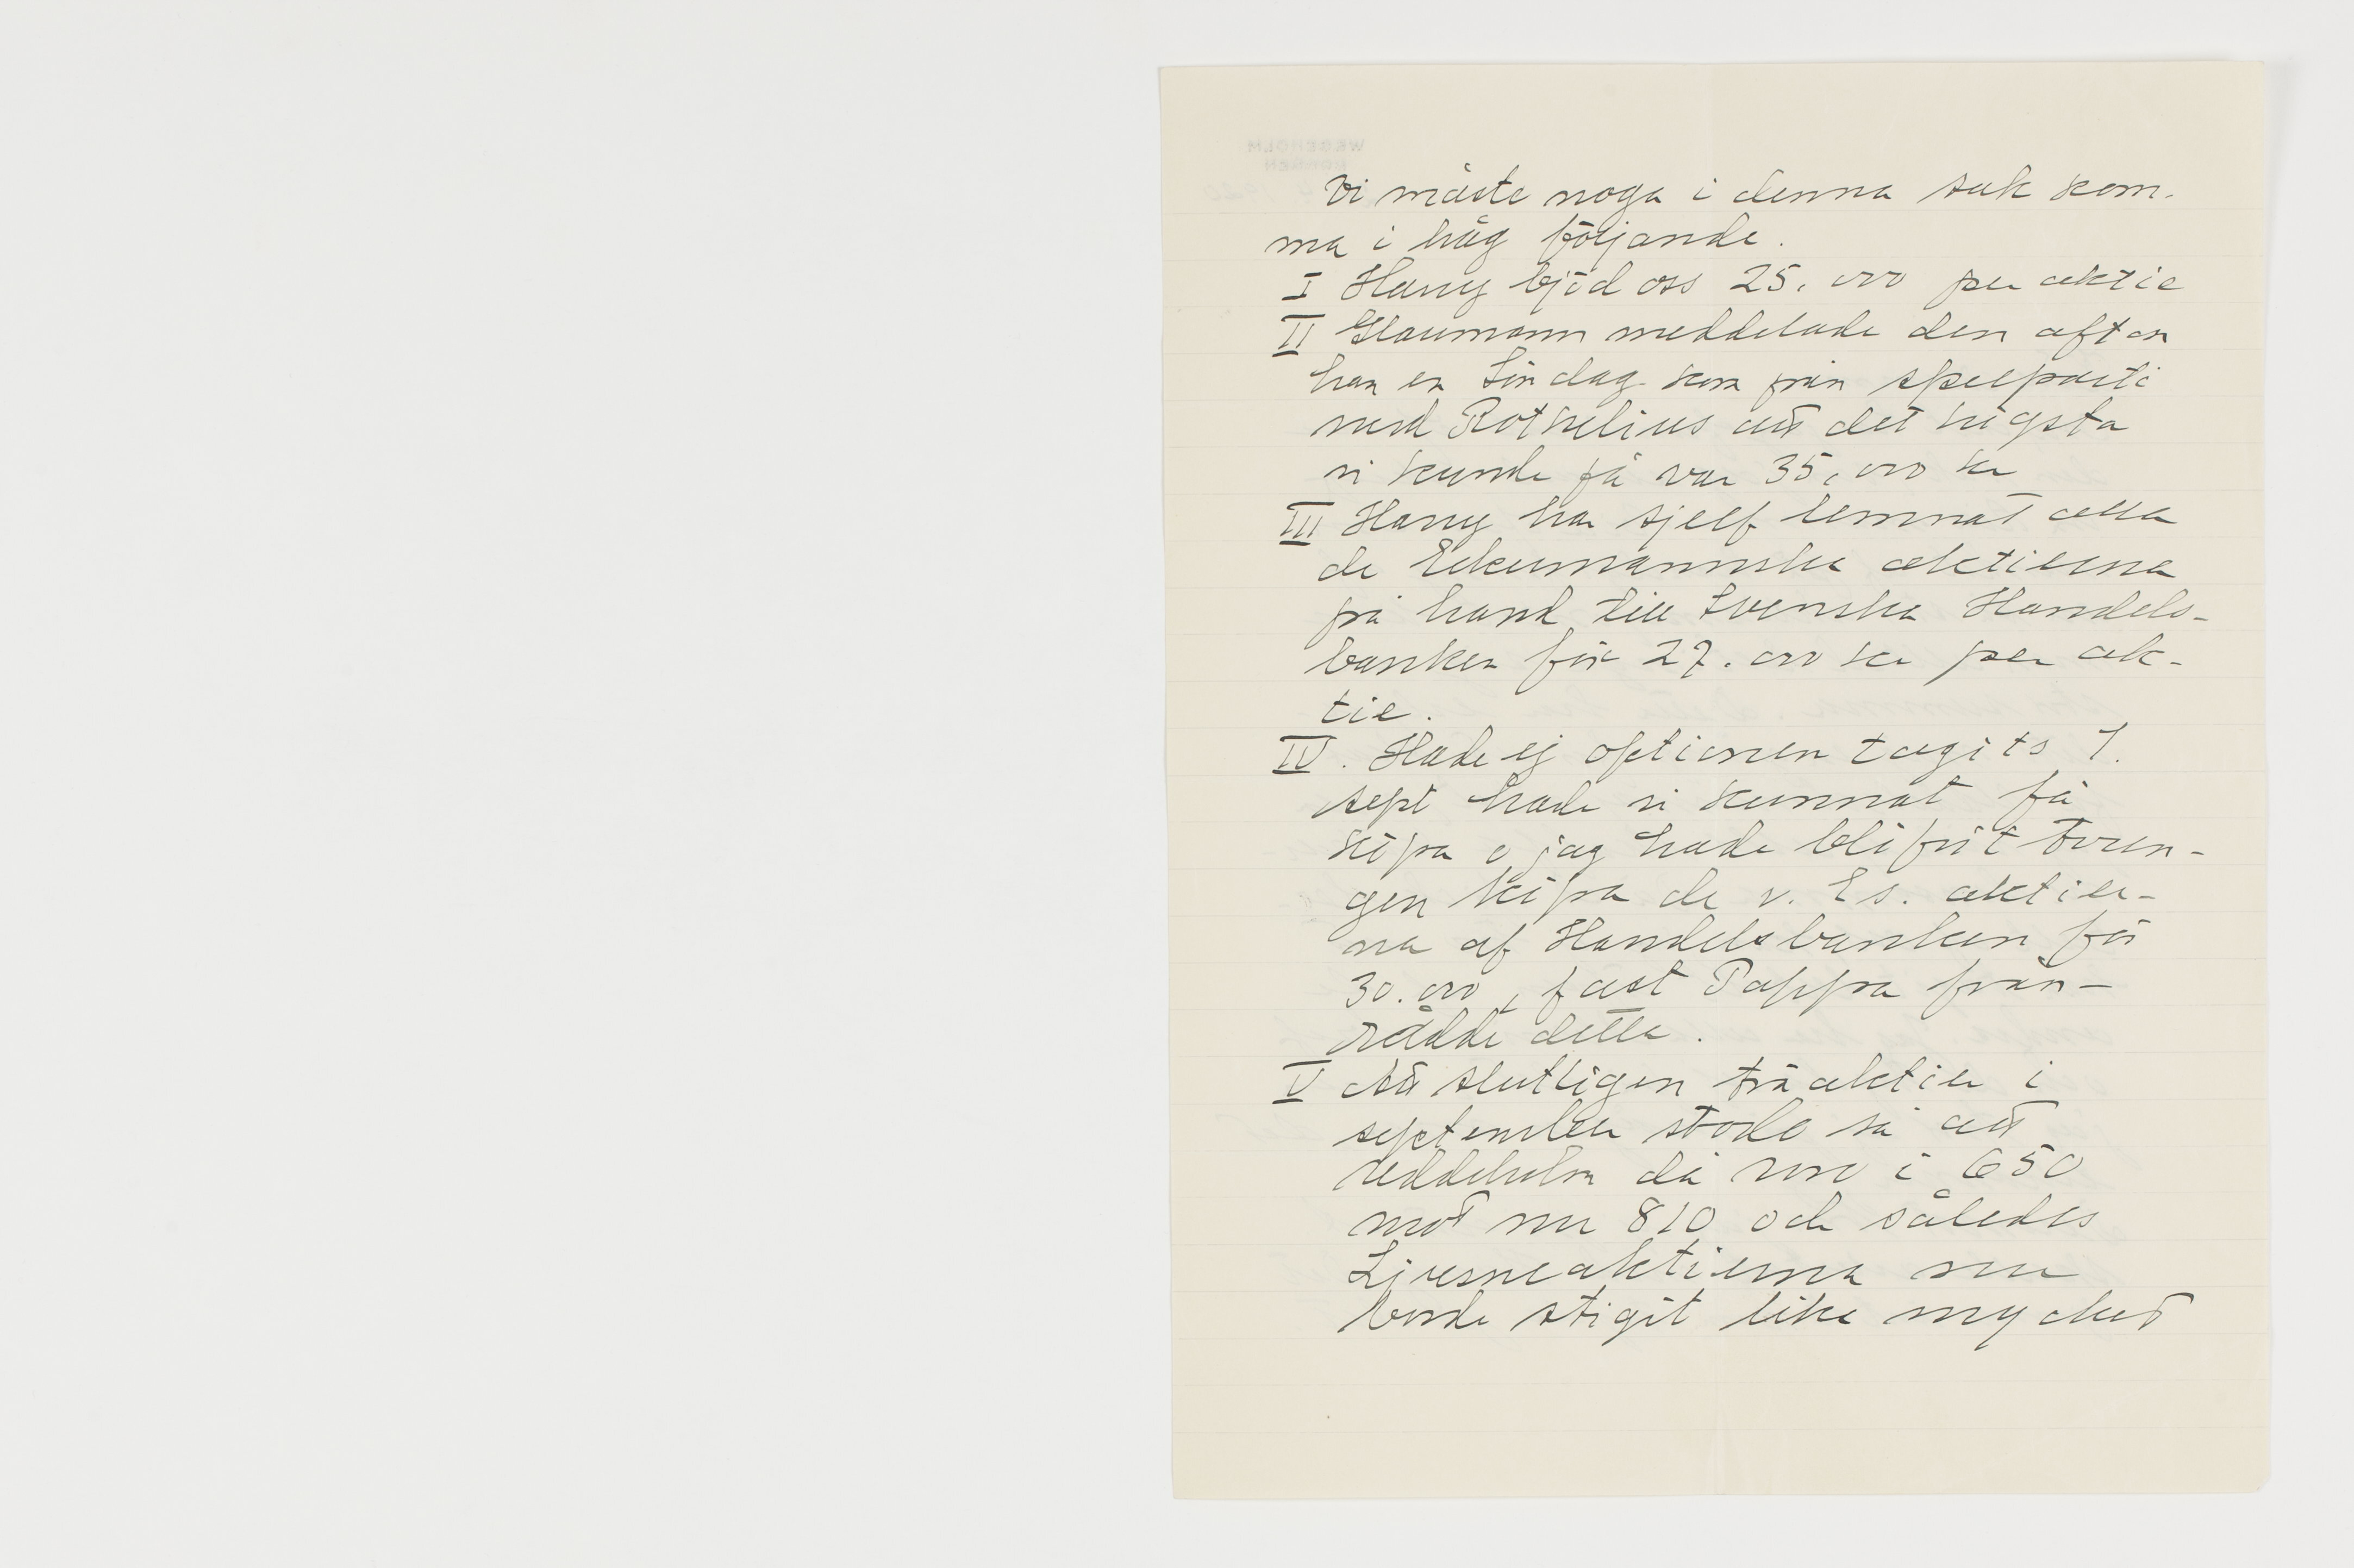 Vi måste noga i denna sak kom-
ma i håg följande.
I Harry bjöd oss 25.000 per aktie
II Glaumann meddelade den afton
han en Söndag kom från spelparti
med Rothelius att det högsta
vi kunde få var 35,000 kr
III Harry har sjelf lemnat alla
de Eckermannska aktierna
på hand till Svenska Handels-
banken för 27.000 kr per ak-
tie.
IV. Hade ej optionen tagits 1.
sept hade vi kunnat få
köpa o jag hade blifvit tven-
gen köpa de v. Es. aktier-
na af Handelsbanken för
30.000, fast Pappa från-
rådde detta.
V Att slutligen träaktier i
september stodo så att
reddeholm då var i 650
mot nu 810 och således
Ljusneaktierna nu
borde stigit lika mycket
WEGEHOLM